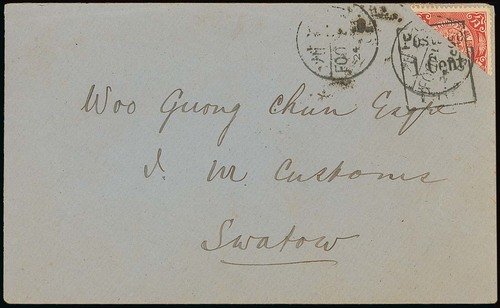 FOO
1 Cent
Woo Guong Chun Esqre
I. M. Customs
Swatow